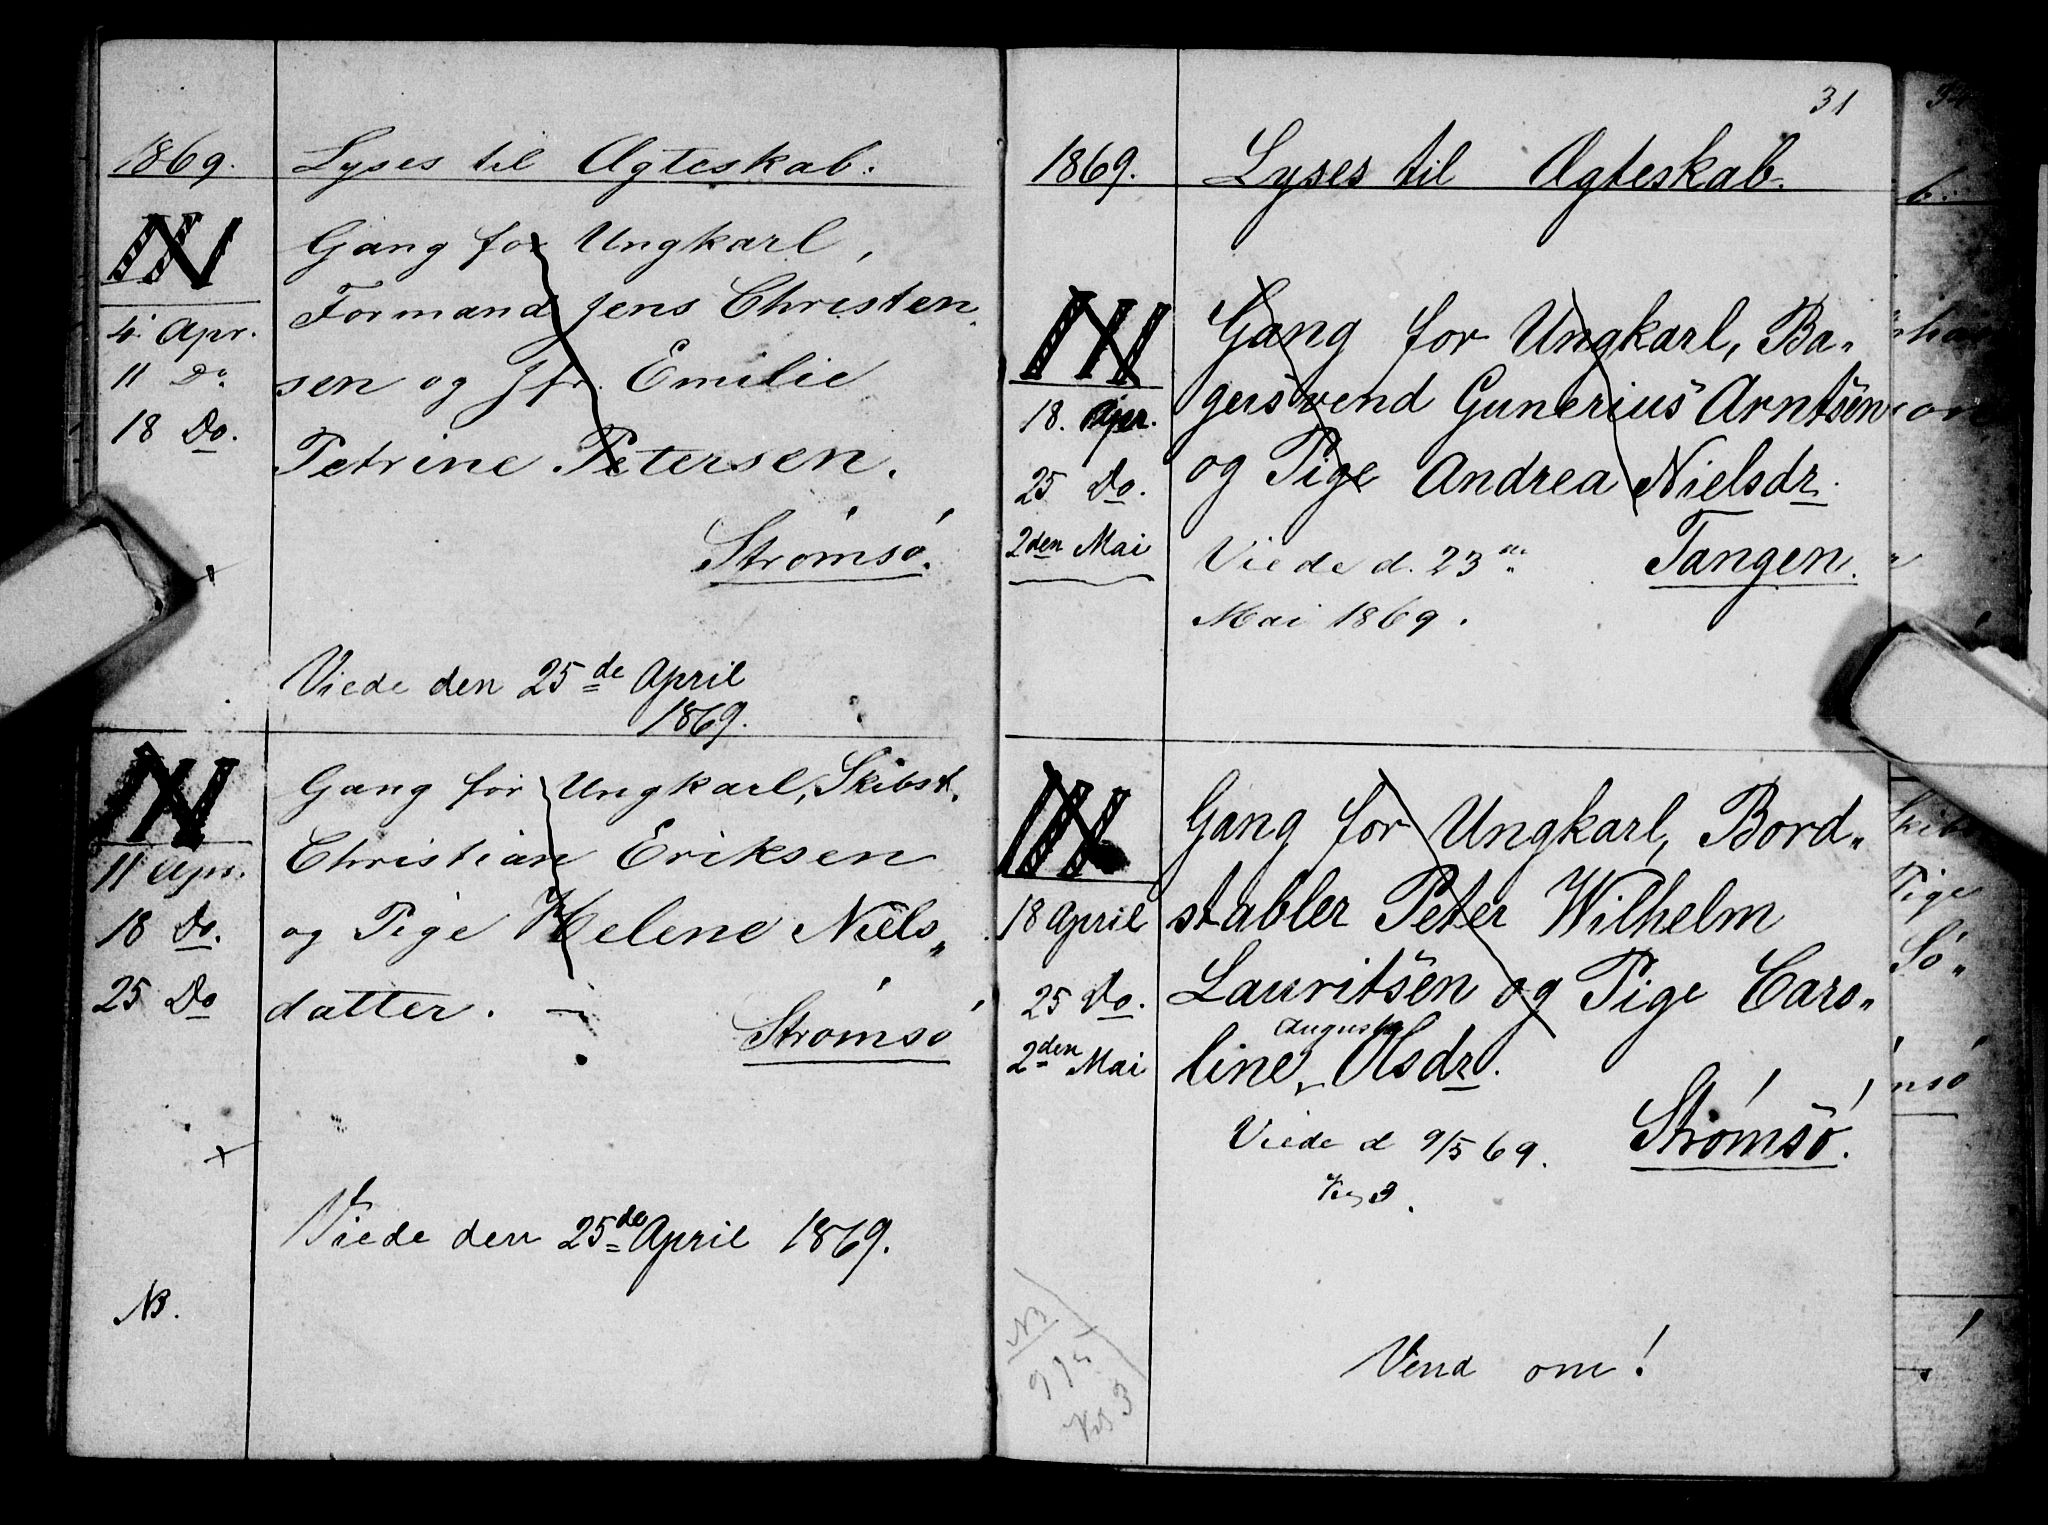 1869. Lyses til Ægteskab.
Gang for Ungkarl,
Formand Jens Christen
4. Apr.
11 Do
sen og Jfr. Emilie
18 Do.
Petrine Petersen.
Strömsö.
Viede den 25de April
1869.
Gang for Ungkarl, Skibst.
Christian Eriksen
11 Apr.
18 Do.
og Pige Helene Niels„
25 Do
datter.
Strömsö
Viede den 25de April 1869.
NB.
31
1869. Lyses til Ægteskab.
Gang for Ungkarl, Ba„
gersvend Gunerius Arntsen
18. Apr.
og Pige Andrea Nielsdr.
25 Do.
2den Mai
Viede d. 23de Tangen.
Mai 1869.
Gang for Ungkarl, Bord„
stabler Peter Wilhelm
18 April
Lauritsen og Pige Caro„
25 Do.
Augusta
line Olsdr.
2den Mai
Strömsö.
Viede d 9/5 69.
Vend om!